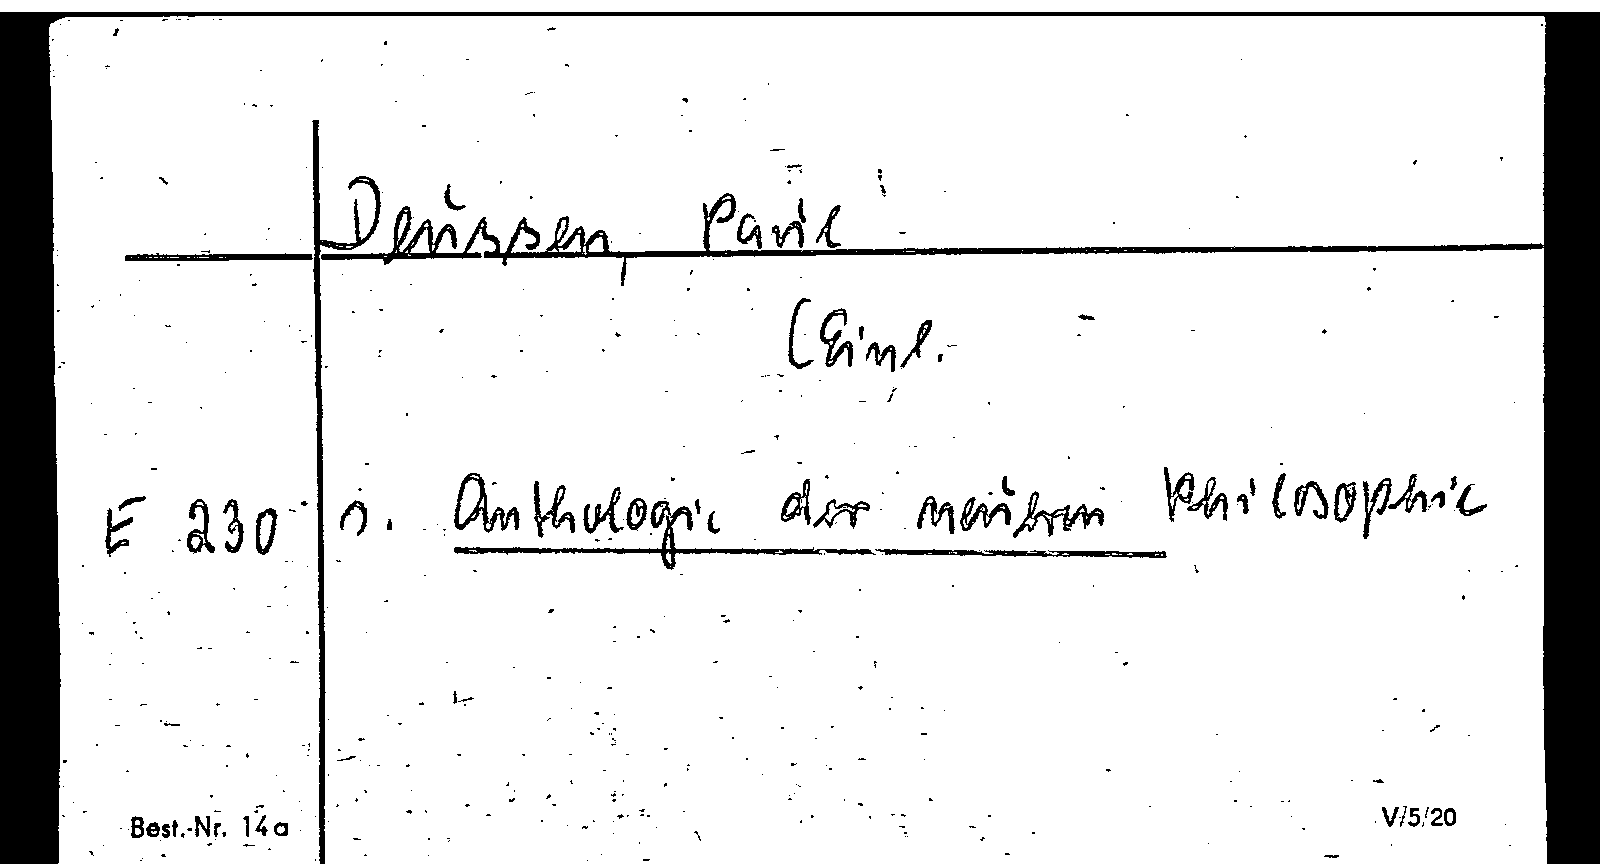 Deussen, Paul
(Einl.
E 230 s. Anthologie der neueren Philosophie
Best.-Nr. 14a V/5/20